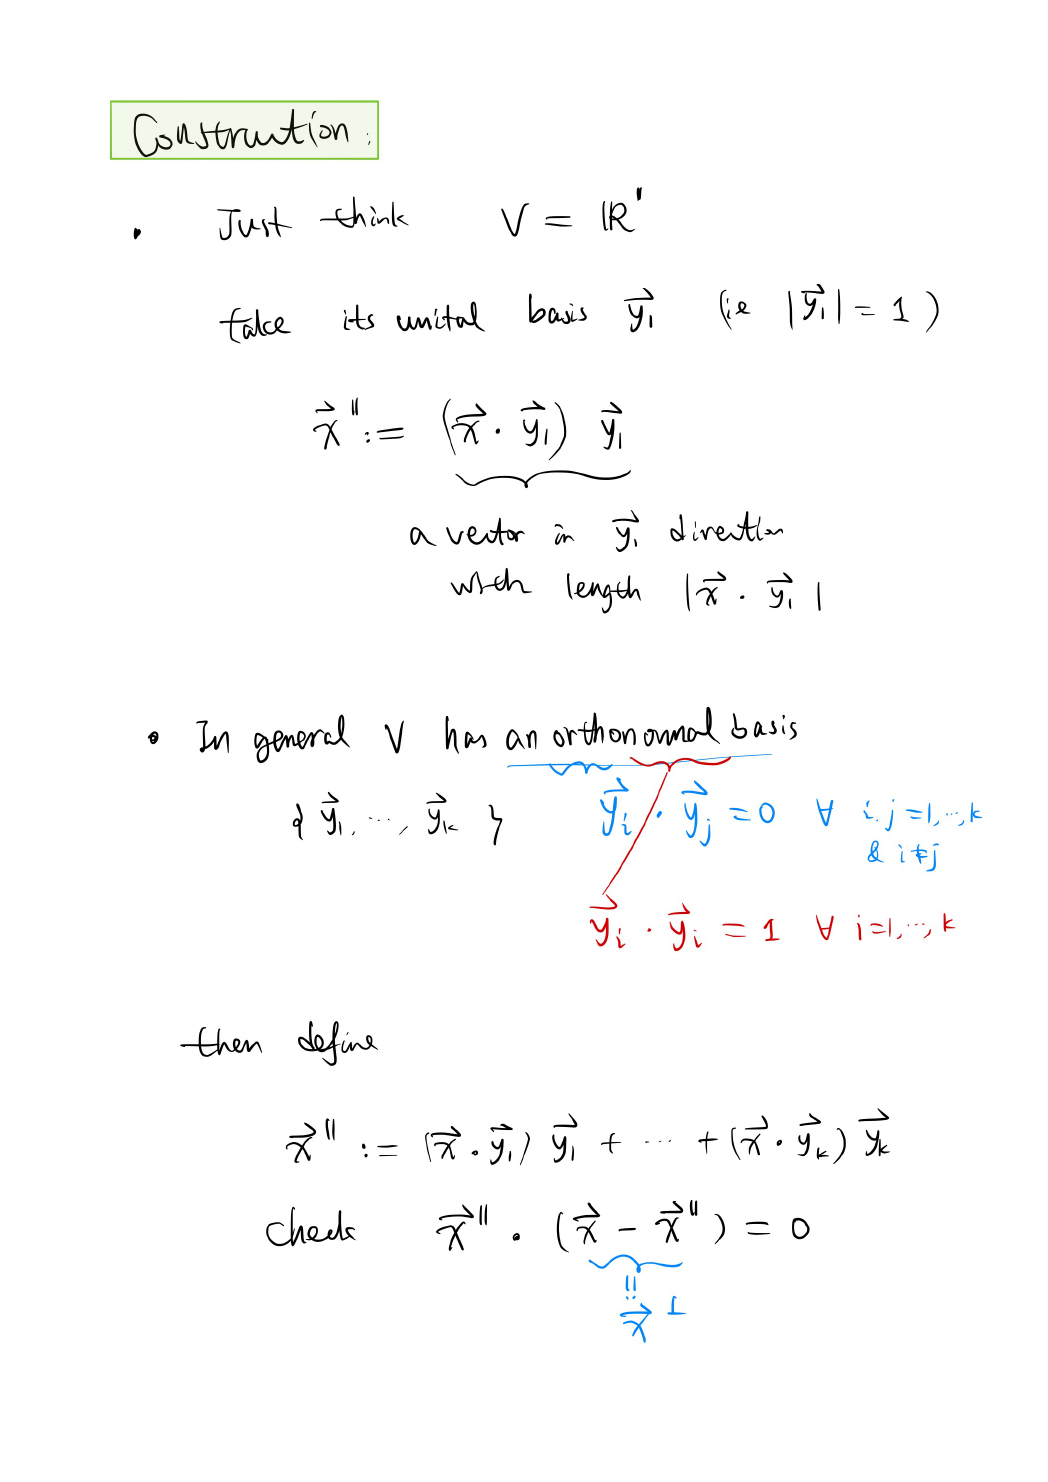 Construction:
• Just think V = ℝ¹
take its unital basis y⃗₁ (ie |y⃗₁| = 1)
x⃗^∥ := (x⃗ · y⃗₁) y⃗₁
a vector in y⃗₁ direction
with length |x⃗ · y⃗₁|
• In general V has an orthonormal basis
{ y⃗₁, ..., y⃗ₖ } y⃗ᵢ · y⃗ⱼ = 0 ∀ i, j = 1, ..., k
& i ≠ j
y⃗ᵢ · y⃗ᵢ = 1 ∀ i = 1, ..., k
then define
x⃗^∥ := (x⃗ · y⃗₁) y⃗₁ + ... + (x⃗ · y⃗ₖ) y⃗ₖ
check x⃗^∥ · (x⃗ − x⃗^∥) = 0
=:
x⃗^⊥